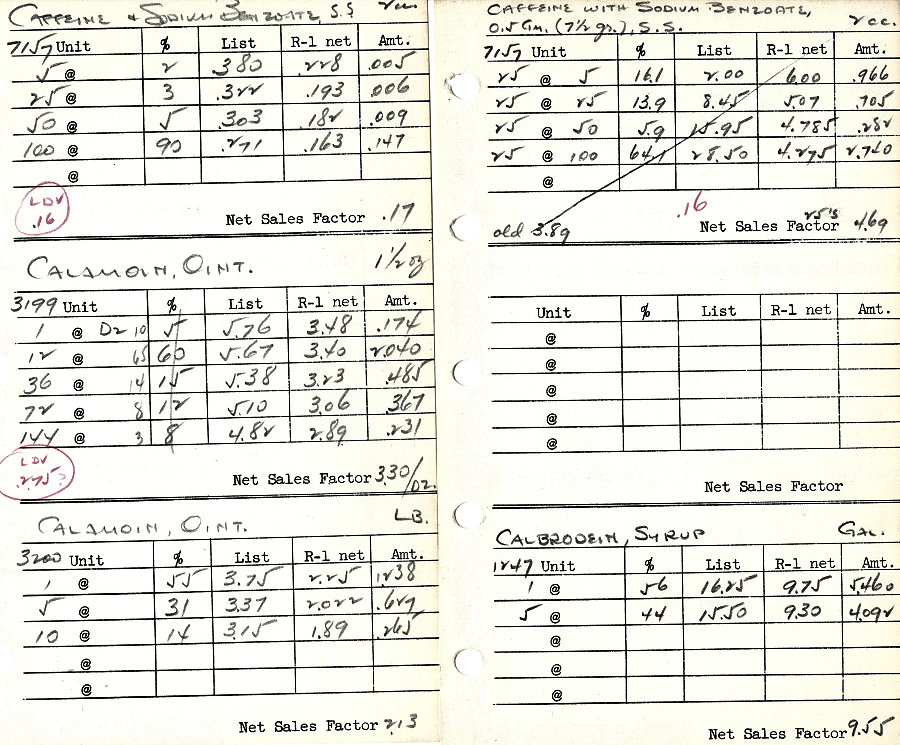 CAFFEINE & SODIUM BENZOATE, S.S. 2cc.
7157 Unit % List R-1 net Amt.
5 @ 2 .380 .228 .005
25 @ 3 .322 .193 .006
50 @ 5 .303 .182 .009
100 @ 90 .271 .163 .147
@
LDV
.16
Net Sales Factor .17
CALAMOIN, OINT. 1 1/2 oz
3199 Unit % List R-1 net Amt.
1 @ D2 10 5 5.76 3.48 .174
12 @ 65 60 5.67 3.40 2.040
36 @ 14 15 5.38 3.23 .485
72 @ 8 12 5.10 3.06 .367
144 @ 3 8 4.82 2.89 .231
LDV
.275
Net Sales Factor 3.30/DZ.
CALAMOIN, OINT. LB.
3200 Unit % List R-1 net Amt.
1 @ 55 3.75 2.25 1.238
5 @ 31 3.37 2.022 .627
10 @ 14 3.15 1.89 .265
@
@
Net Sales Factor 2.13
CAFFEINE WITH SODIUM BENZOATE,
0.5 Gm. (7 1/2 gr.), S.S. 2cc.
7157 Unit % List R-1 net Amt.
25 @ 5 16.1 2.00 6.00 .966
25 @ 25 13.9 8.45 5.07 .705
25 @ 50 5.9 15.95 4.785 .282
25 @ 100 64.1 28.50 4.275 2.740
@
.16
old 3.89 Net Sales Factor 25's 4.69
Unit % List R-1 net Amt.
@
@
@
@
@
Net Sales Factor
CALBRODEIN, SYRUP GAL.
1247 Unit % List R-1 net Amt.
1 @ 56 16.25 9.75 5.460
5 @ 44 15.50 9.30 4.092
@
@
@
Net Sales Factor 9.55